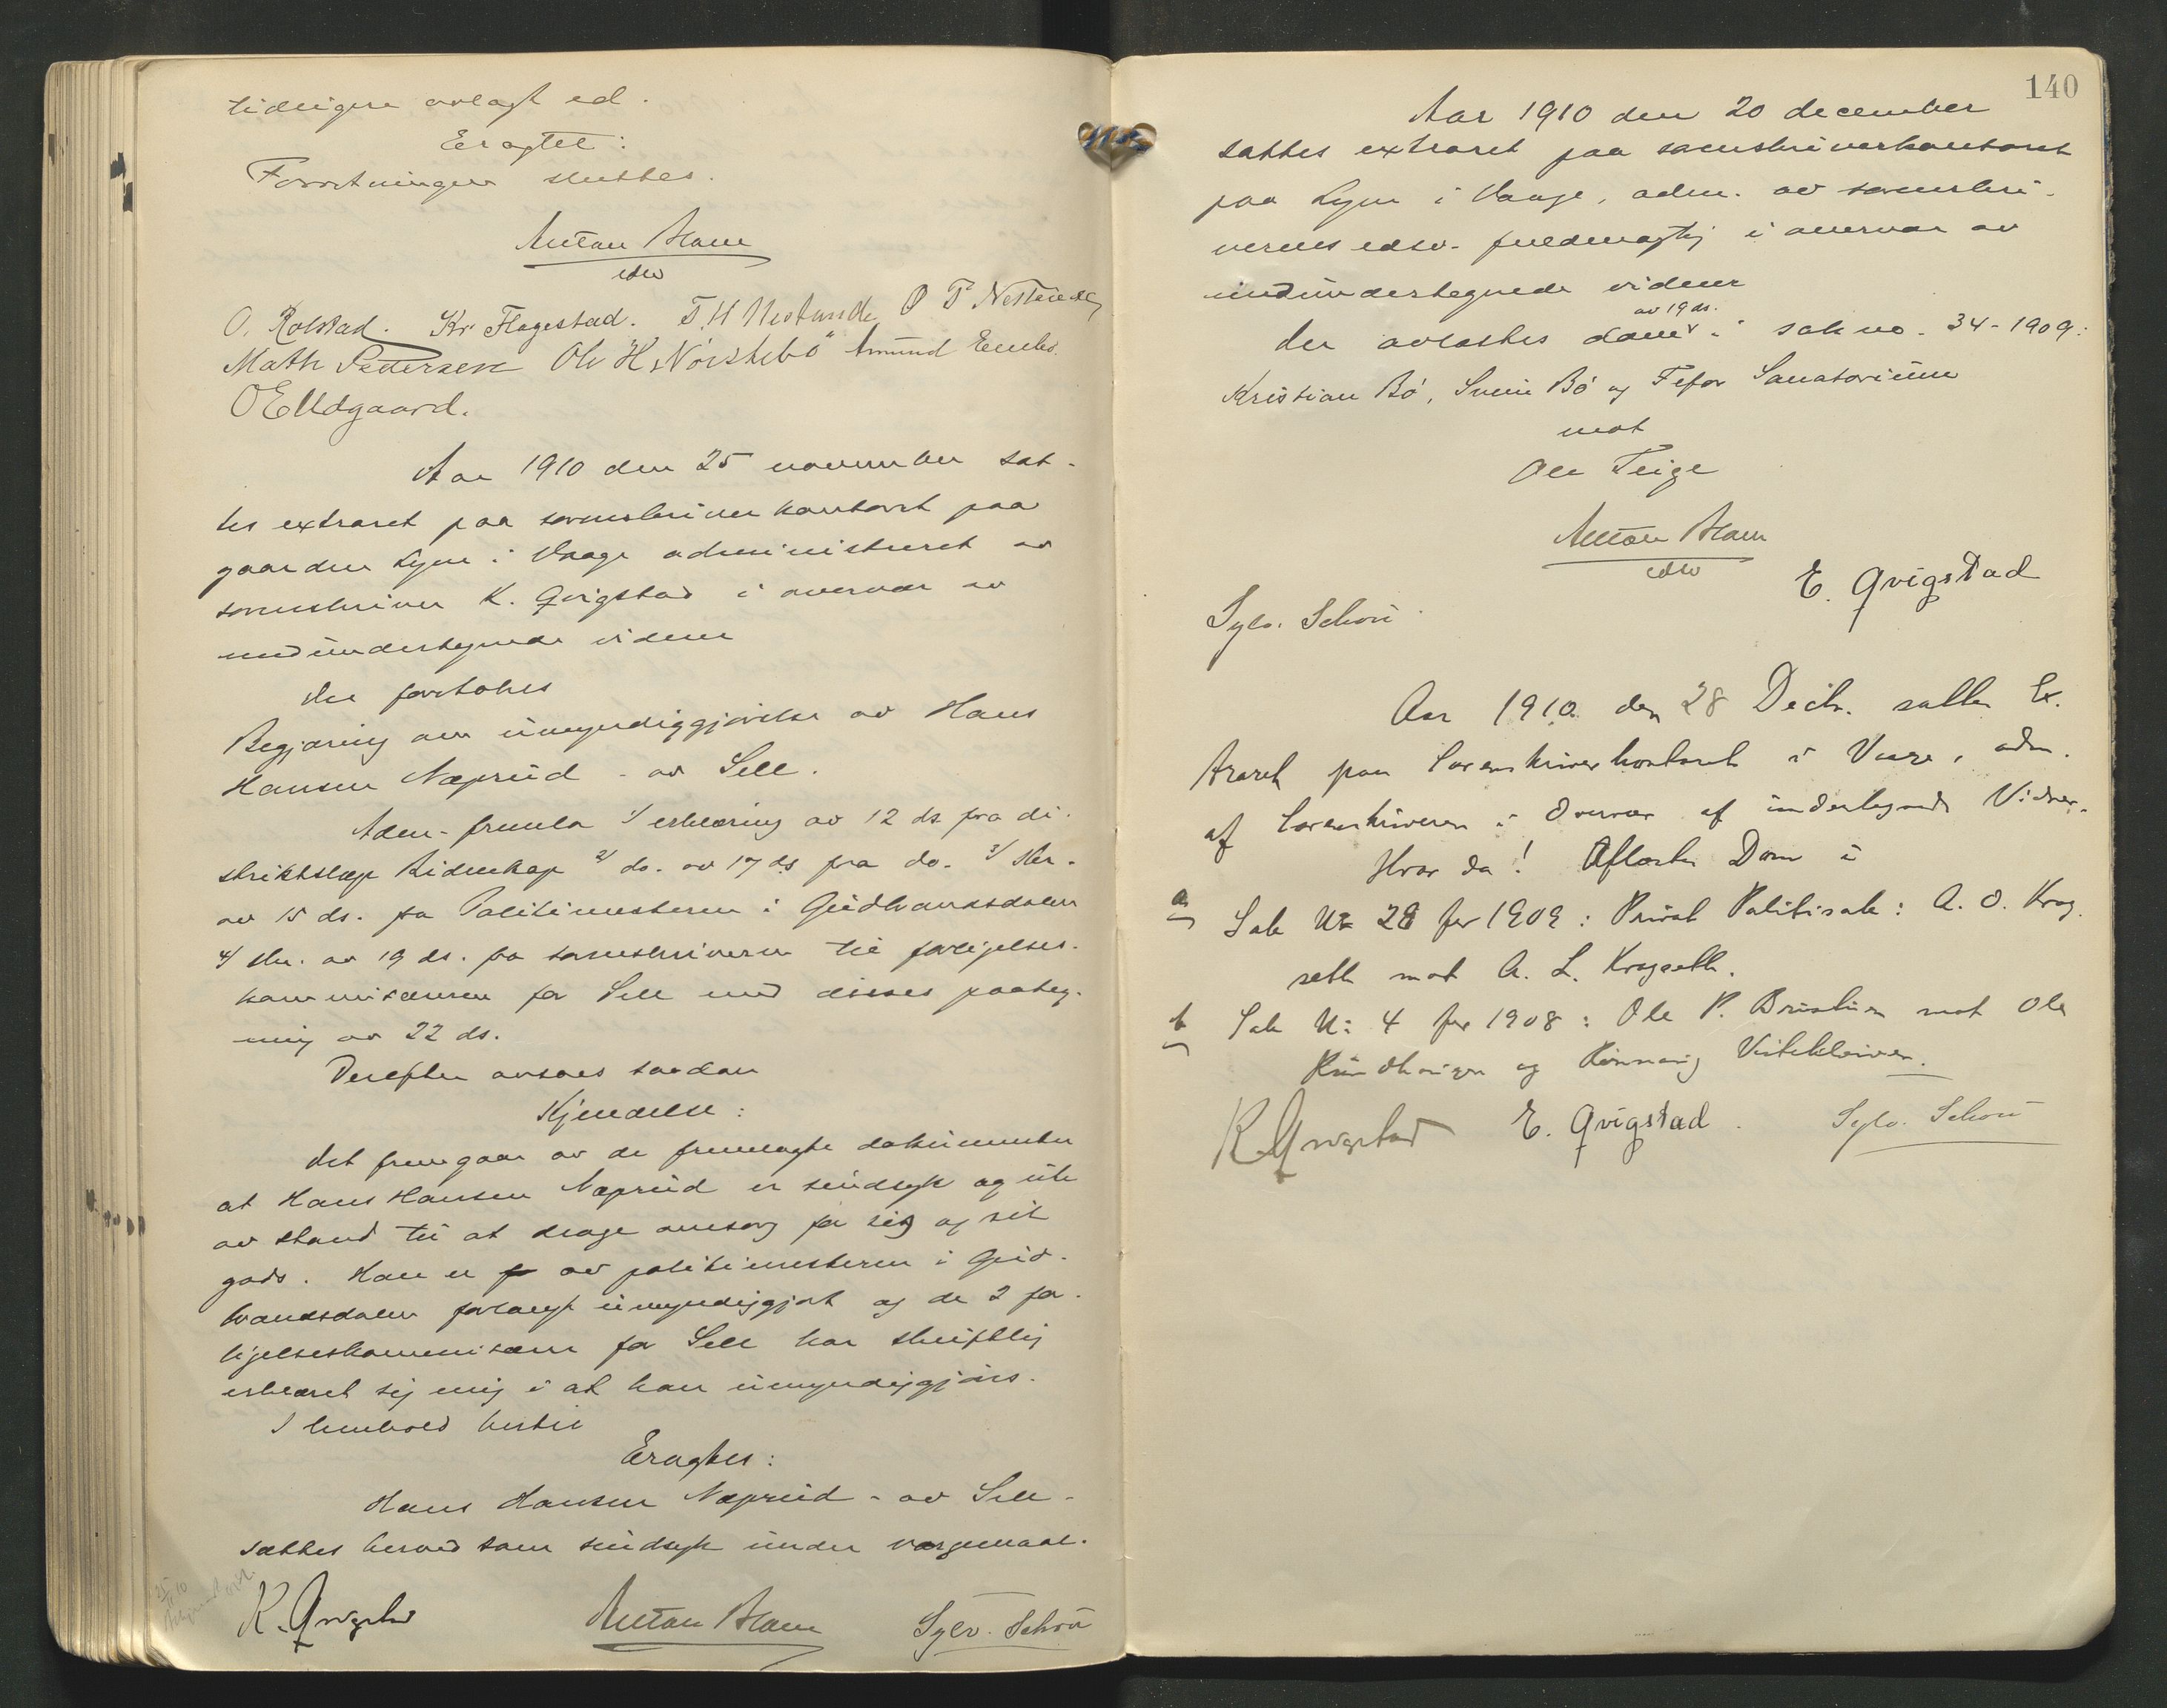 tidligere avlagt ed.
Eragtet:
Forretningen sluttes.
Anton Ham
edsv
O. Rolstad. Kr. Flagestad. T. H. Nestande O T Nesteie
Math Pedersen Ole H. Nörstebö Amund Embo.
O E Uldgaard.
Aar 1910 den 25 november sat-
tes extraret paa sorenskriverkontoret paa
gaarden Lyen i Vaage administreret av
sorenskriver K. Qvigstad i overvær av
medundertegnede vidner
Der foretokes
Begjæring om umyndiggjörelse av Hans
Hansen Næprud - av Sell.
Adm. fremla 1/ erklæring av 12 ds. fra di-
striktslæge Kidenkap 2/ do. av 17 ds fra do. 3/ skr.
av 15 ds. fra Politimesteren i Gudbrandsdalen
4/ skr. av 19 ds. fra sorenskriveren til forligelses-
kommissæren for Sell med disses paateg-
ning av 22 ds.
Derefter avsaes saadan
Kjendelse:
Det fremgaar av de fremlagte dokumenter
at Hans Hansen Næprud er sindssyk og ute
av stand til at drage omsorg for sig og sit
gods. Han er av politimesteren i Gud-
brandsdalen forlangt umyndiggjort og de 2 for-
ligelseskommissærer for Sell har skriftlig
erklæret sig enig i at han umyndiggjöres.
I henhold hertil
Eragtes:
Hans Hansen Næprud - av Sell -
sættes herved som sindssyk under vergemaal.
K. Qvigstad Anton Ham Sylv. Schou
140
Aar 1910 den 20 december
sattes extraret paa sorenskriverkontoret
paa Lyen i Vaage, adm. av sorenskri-
verens edsv. fuldmægtig i overvær av
medundertegnede vidner
av 19 ds.
Der avlastes dom i sak no. 34-1909:
Kristian Bö, Svein Bö og Fefor Sanatorium
mot
Ole Teige
Anton Ham
edsv
E. Qvigstad
Sylv. Schou
Aar 1910 den 28 Decbr. sattes Ex-
traret paa Sorenskriverkontoret i Vaage, adm.
af Sorenskriveren i Overvær af undertegnede Vidner.
Hvor da! Aflæstes Dom i
a) Sak No 28 for 1909: Privat Politisak: A. O. Krog-
seth mot A. L. Krogseth.
b) Sak No 4 for 1908: Ole P. Bristuen mot Ole
Rundhaugen og Rönnaug Veiklkleiven.
K Qvigstad E. Qvigstad. Sylv. Schou